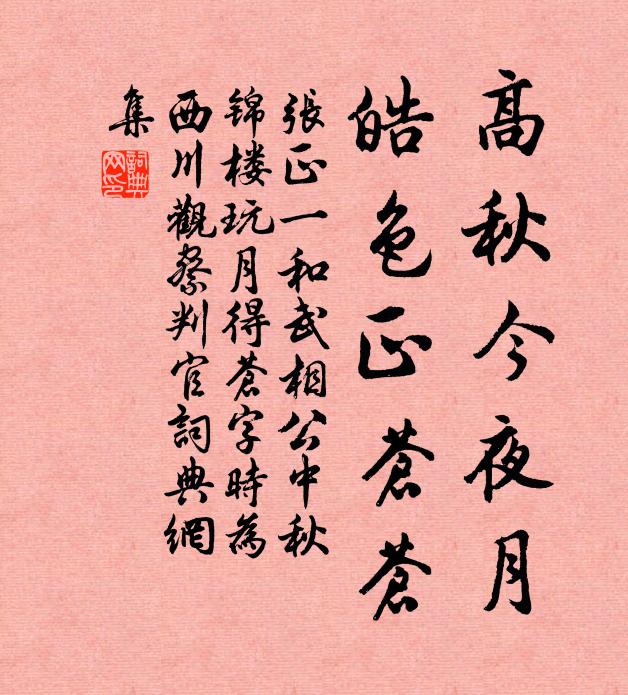 高秋今夜月
皓色正蒼蒼
張正一和武相公中秋
锦楼玩月得蒼字時為
西川觀察判官詞典網
集
詞典
网印